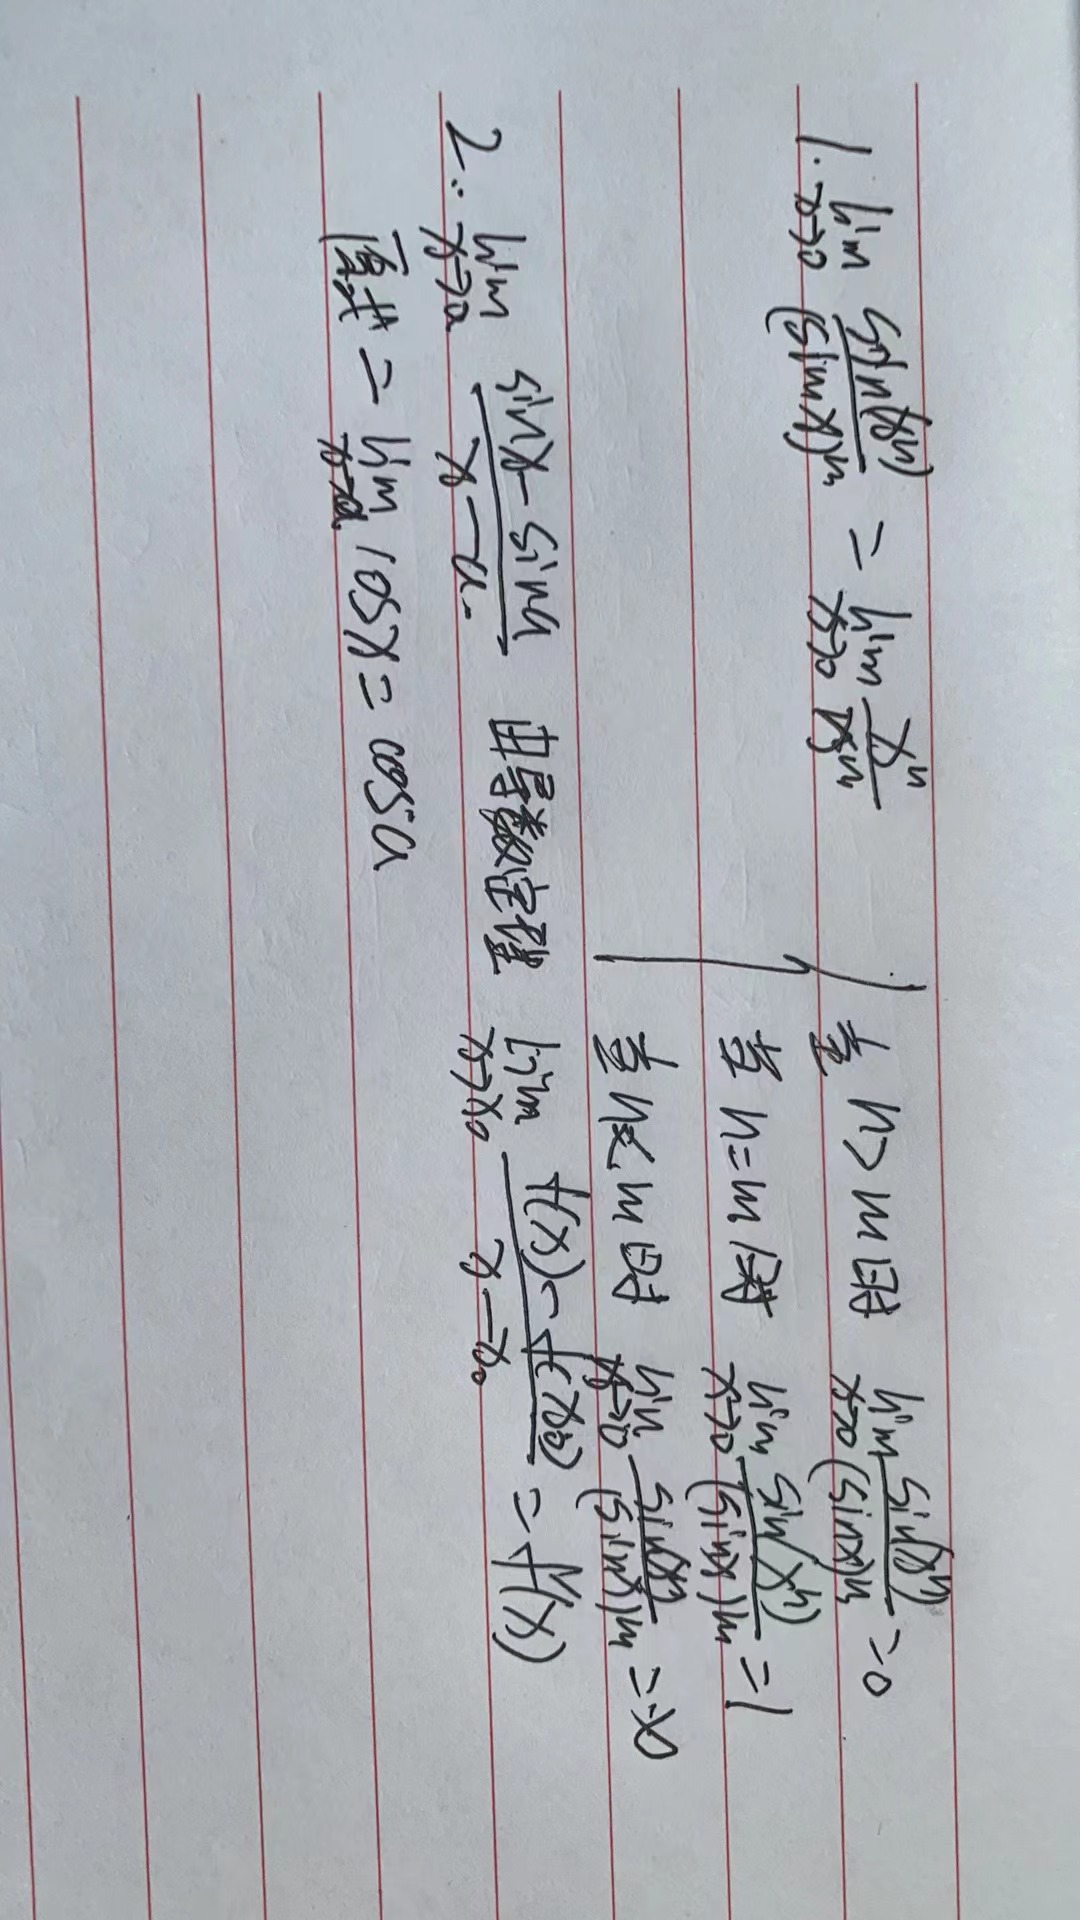 1. lim x→0 sin(xⁿ)/(sinx)ᵐ = lim x→0 xⁿ/xᵐ
当 n>m时 lim x→0 sin(xⁿ)/(sinx)ᵐ =0
当 n=m时 lim x→0 sin(xⁿ)/(sinx)ᵐ =1
当 n<m时 lim x→0 sin(xⁿ)/(sinx)ᵐ =∞
2. lim x→a sinx-sina/x-a. 由导数定理 lim x→x₀ f(x)-f(x₀)/x-x₀ =f'(x)
原式= lim x→a cosx= cosa